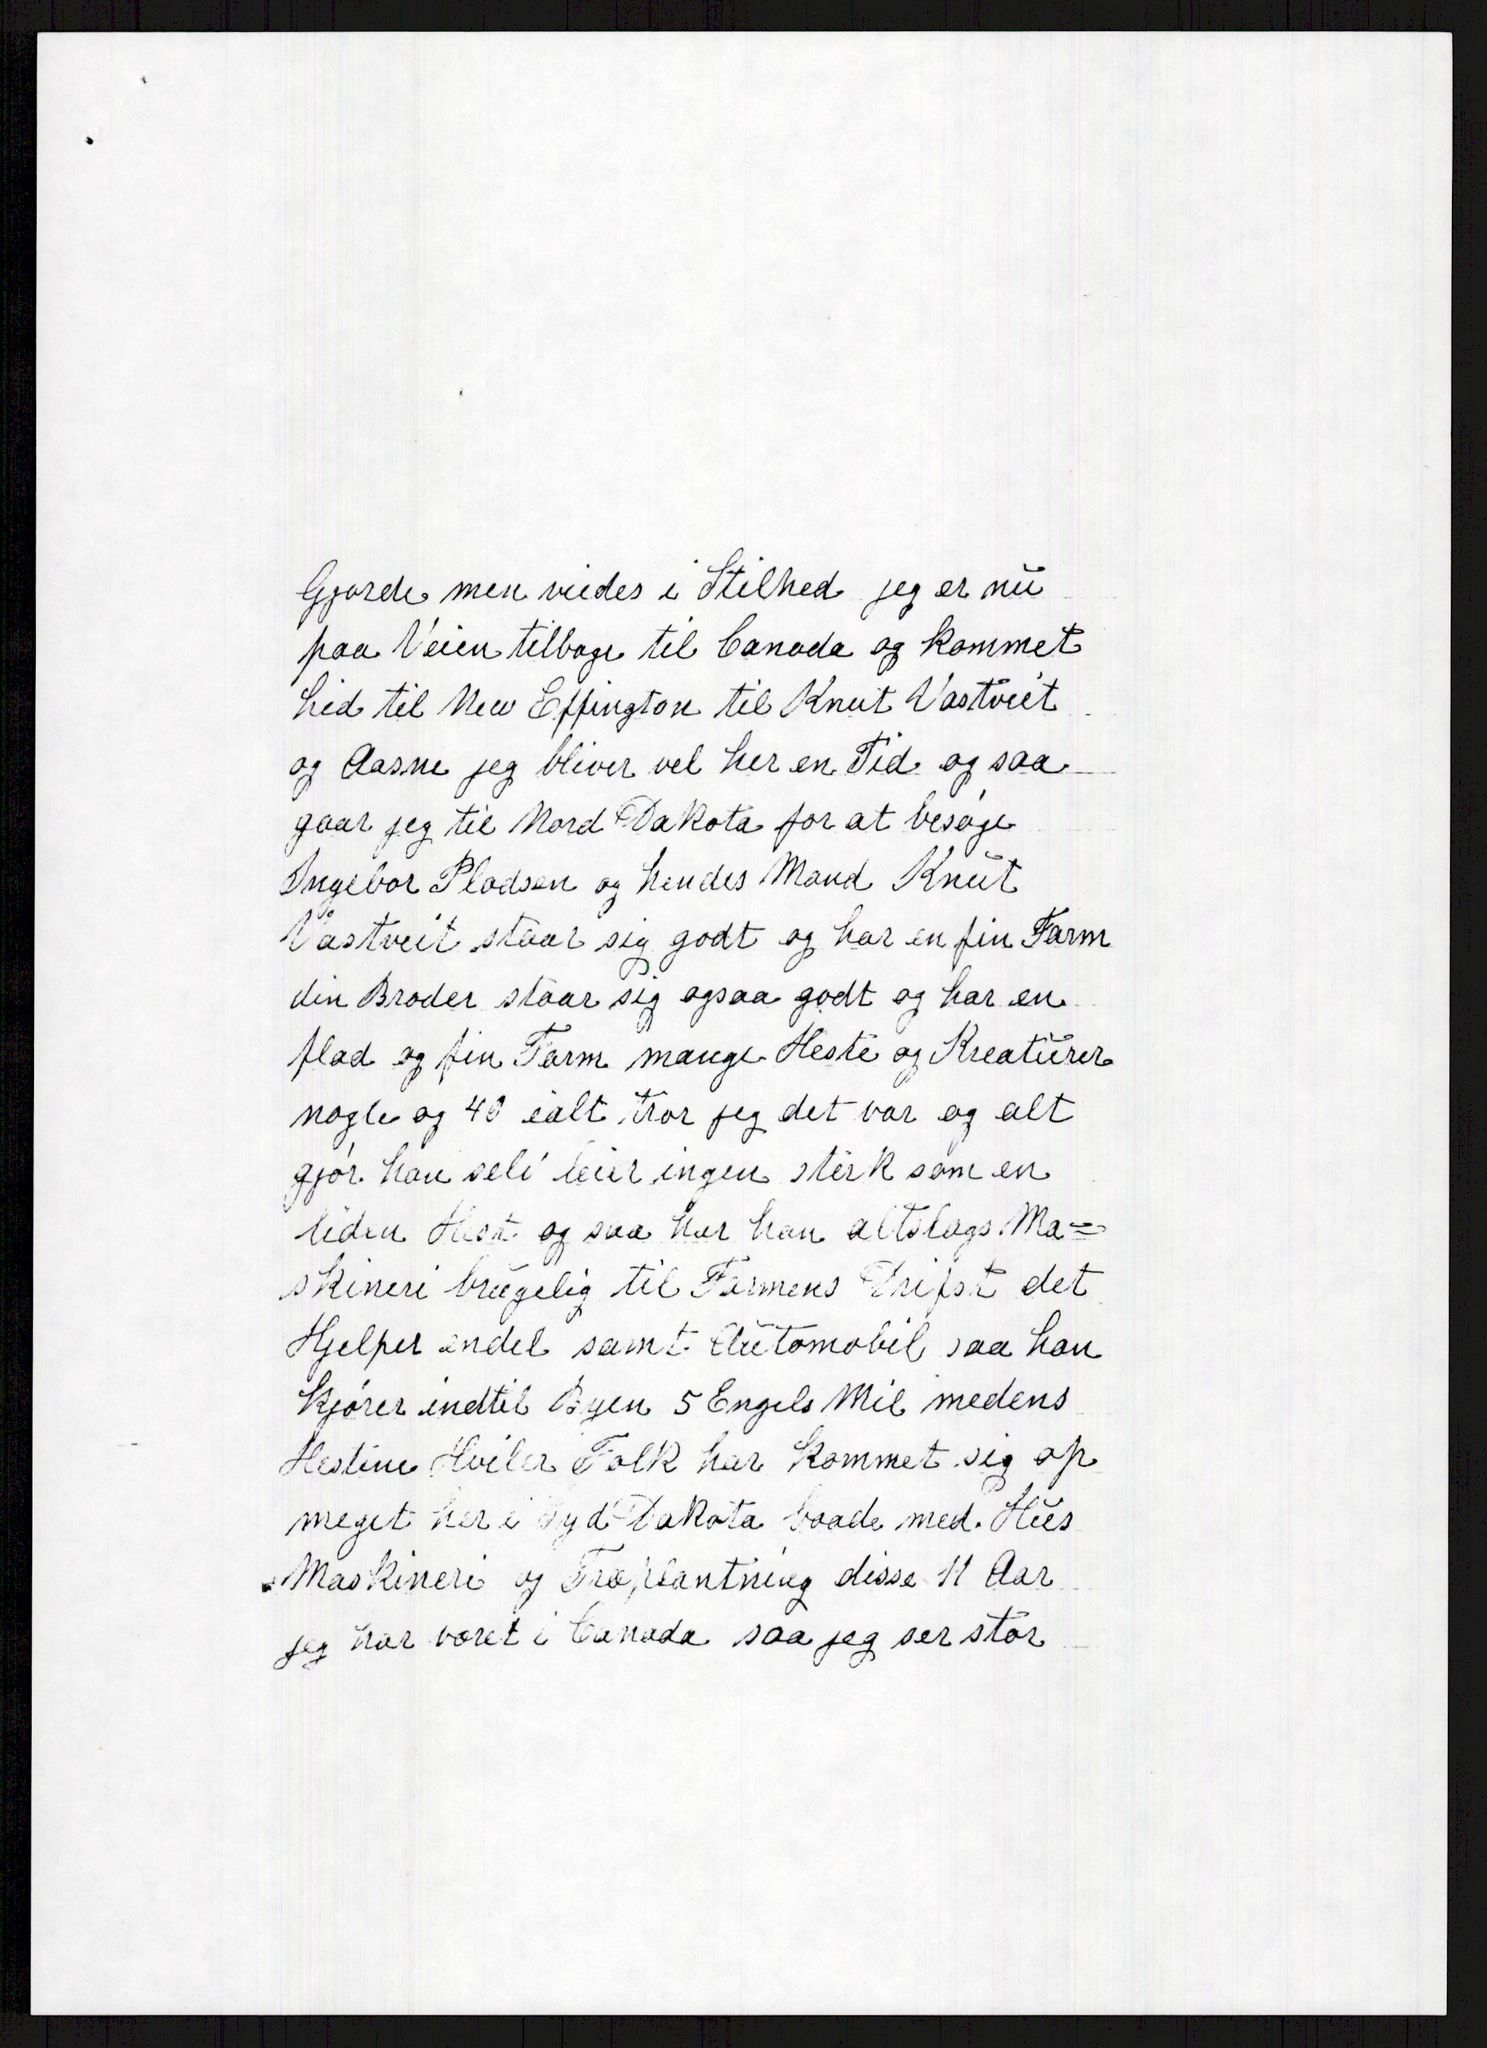 Gjorde men viedes i Stilhed jeg er nu
paa Veien tilbage til Canada og kommet
hid til New Effington til Knut Vastveit
og Aasne jeg bliver vel her en Tid og saa
gaar jeg til Nord Dakota for at besøge
Ingebor Pladsen og hendes Mand Knut
Vastveit staar sig godt og har en fin Farm
din Broder staar sig ogsaa godt og har en
flad og fin Farm mange Heste og Kreaturer
nogle og 40 ialt tror jeg det var og alt
gjør han selv leier ingen sterk som en
liden Hest og saa har han altslags Ma=
skineri brugelig til Farmens Drifst det
Hjelper endel samt Automobil saa han
kjører indtil Byen 5 Engels Mil medens
Hestene Hviler Folk har kommet sig op
meget her i Syd Dakota baade med Hus
Maskineri og Træplantning disse 11 Aar
jeg har været i Canada saa jeg ser stor